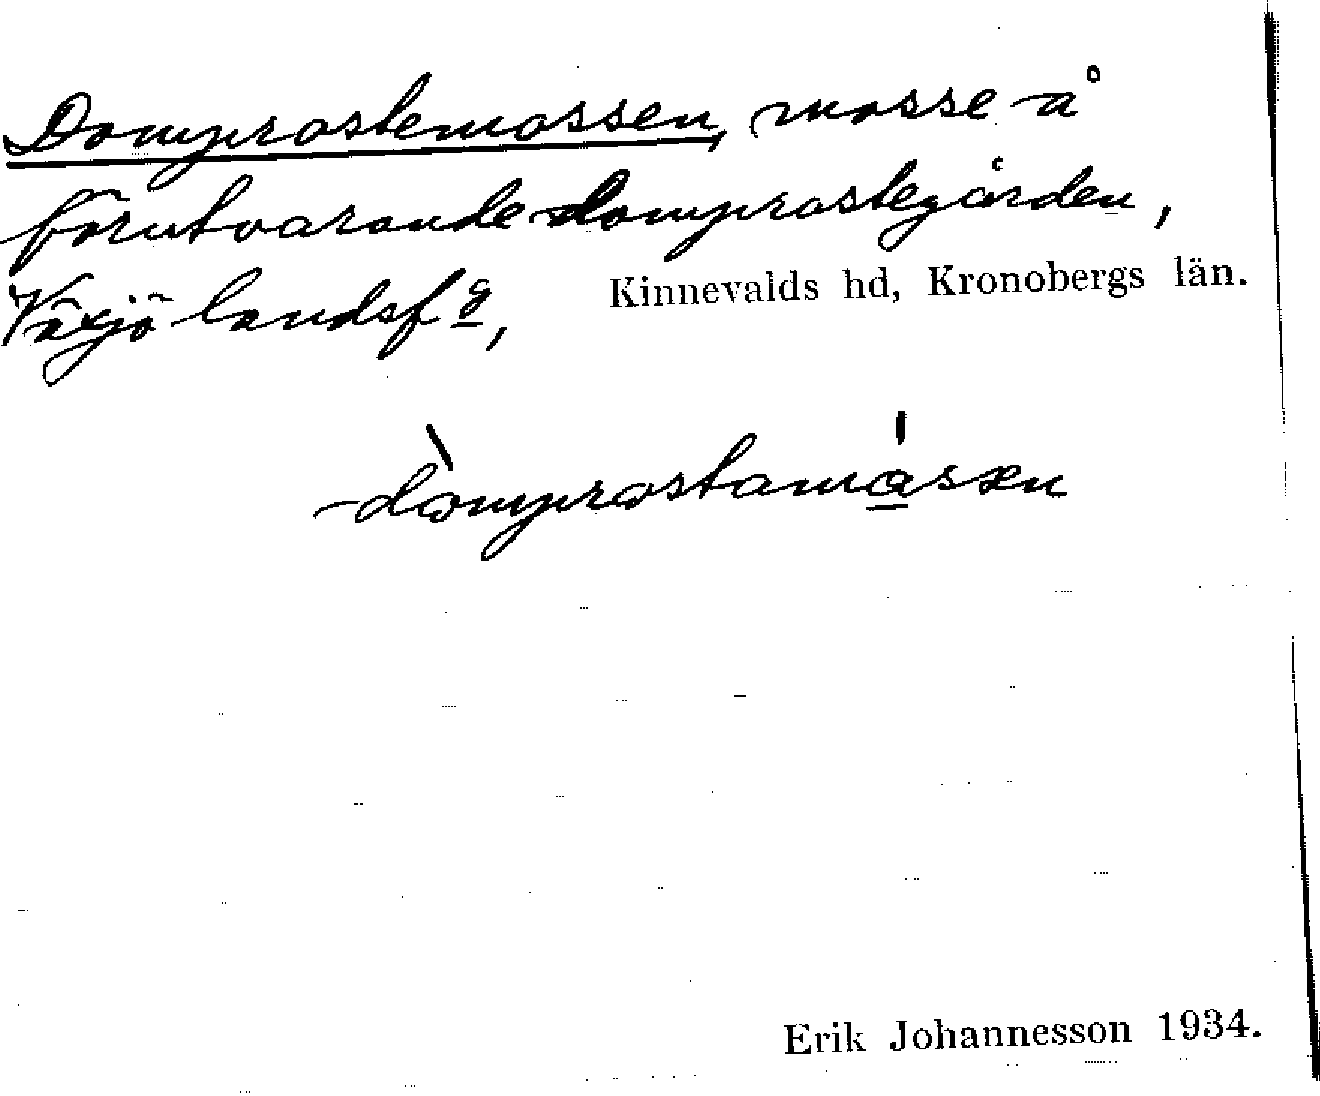 Domprostemossen, mosse å
förutvarande domprostegården,
Växjö landsfg, Kinnevalds hd, Kronobergs län.
dòmprostamásen
Erik Johannesson 1934.